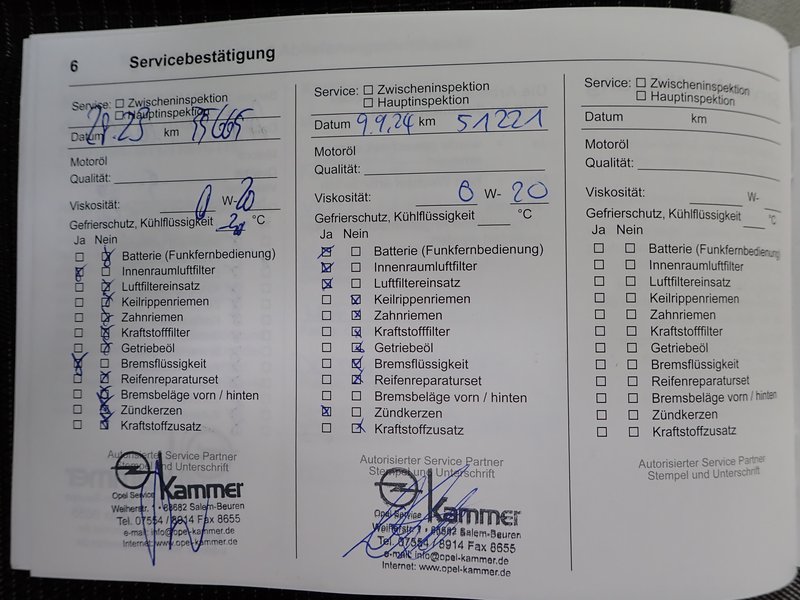 6 Servicebestätigung
Service: ☐ Zwischeninspektion
☐ Hauptinspektion
Datum km
Motoröl
Qualität:
Viskosität: 0 W-20
Gefrierschutz, Kühlflüssigkeit °C
Ja Nein
Batterie (Funkfernbedienung)
Innenraumluftfilter
Luftfiltereinsatz
Keilrippenriemen
Zahnriemen
Kraftstofffilter
Getriebeöl
Bremsflüssigkeit
Reifenreparaturset
Bremsbeläge vorn / hinten
Zündkerzen
Kraftstoffzusatz
Autorisierter Service Partner
Stempel und Unterschrift
Opel Service Kammer
Weiherstr. 1 • 88682 Salem-Beuren
Tel. 07554 / 8914 Fax 8655
e-mail: info@opel-kammer.de
Internet: www.opel-kammer.de
Service: ☐ Zwischeninspektion
☐ Hauptinspektion
Datum 9.9.24 km 51221
Motoröl
Qualität:
Viskosität: 0 W-20
Gefrierschutz, Kühlflüssigkeit °C
Ja Nein
Batterie (Funkfernbedienung)
Innenraumluftfilter
Luftfiltereinsatz
Keilrippenriemen
Zahnriemen
Kraftstofffilter
Getriebeöl
Bremsflüssigkeit
Reifenreparaturset
Bremsbeläge vorn / hinten
Zündkerzen
Kraftstoffzusatz
Autorisierter Service Partner
Stempel und Unterschrift
Opel Service Kammer
Weiherstr. 1 • 88682 Salem-Beuren
Tel. 07554 / 8914 Fax 8655
e-mail: info@opel-kammer.de
Internet: www.opel-kammer.de
Service: ☐ Zwischeninspektion
☐ Hauptinspektion
Datum km
Motoröl
Qualität:
Viskosität: W-
Gefrierschutz, Kühlflüssigkeit °C
Ja Nein
Batterie (Funkfernbedienung)
Innenraumluftfilter
Luftfiltereinsatz
Keilrippenriemen
Zahnriemen
Kraftstofffilter
Getriebeöl
Bremsflüssigkeit
Reifenreparaturset
Bremsbeläge vorn / hinten
Zündkerzen
Kraftstoffzusatz
Autorisierter Service Partner
Stempel und Unterschrift